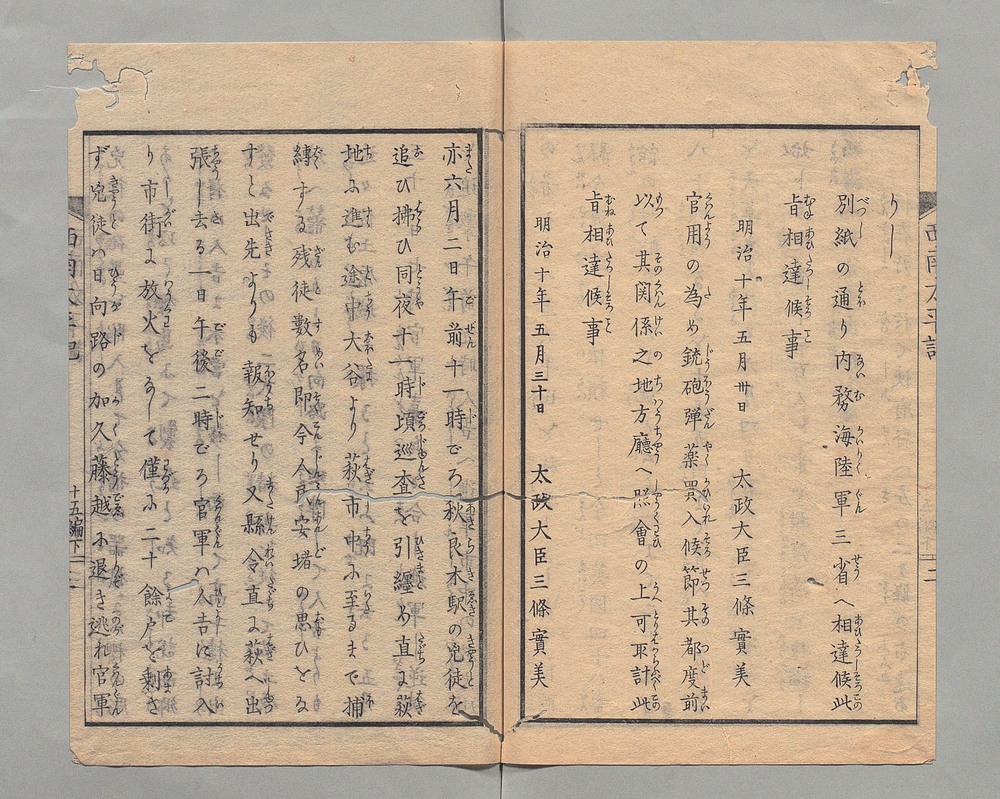 りし
別紙の通り内務海陸軍三省へ相達候此
旨相達候事
明治十年五月卅日 太政大臣三條實美
官用の為め銃砲弾薬買入候節其都度前
以て其関係之地方廳へ照會の上可取計此
旨相達候事
明治十年五月三十日 太政大臣三條實美
亦六月二日午前十一時ごろ秋良木駅の兇徒を
追ひ拂ひ同夜十一時頃巡査を引纏め直に萩
地に進む途中大谷より萩市中に至るまで捕
縛する残徒數名即今人民安堵の思ひをな
すと出先よりも報知せり又縣令直に萩へ出
張し去る一日午後二時ごろ官軍ハ人吉に討入
り市街は放火をなして僅に二十餘戸を剰さ
ず兇徒ハ日向路の加久藤越に退き逃れ官軍
十五編下